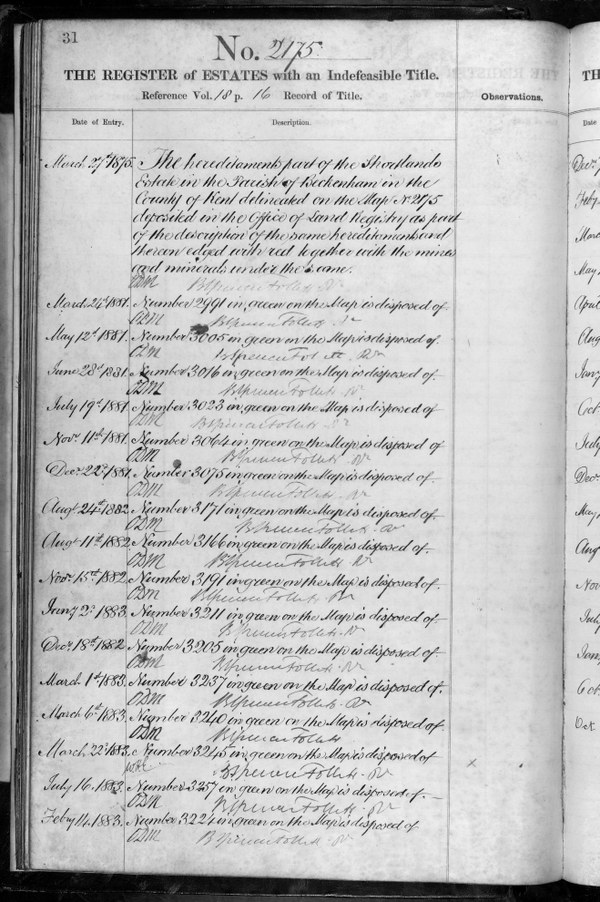 31
No. 2175.
THE REGISTER of ESTATES with an Indefeasible Title.
Reference Vol. 18 p. 16 Record of Title.
Observations.
Date of Entry.
Description.
March 27th 1875. The hereditaments part of the Shortlands
Estate in the Parish of Beckenham in the
County of Kent delineated on the Map No. 2175
deposited in the Office of Land Registry as part
of the description of the same hereditaments and
thereon edged with red together with the mines
and minerals under the same.
ODM Brent Spencer Follett Rr
March 24th 1881. Number 2991 in green on the Map is disposed of
ODM B Spencer Follett Rr
May 12th 1881. Number 3005 in green on the Map is disposed of.
ODM B Spencer Follett Rr
June 28th 1881. Number 3016 in green on the Map is disposed of.
ODM B Spencer Follett Rr
July 19th 1881. Number 3023 in green on the Map is disposed of
ODM B Spencer Follett Rr
Novr. 11th 1881. Number 3064 in green on the Map is disposed of
ODM B Spencer Follett Rr
Decr. 22d 1881. Number 3075 in green on the Map is disposed of.
ODM B Spencer Follett Rr
Augt 24th 1882. Number 3171 in green on the Map is disposed of.
ODM B Spencer Follett Rr
Augt 11th 1882. Number 3166 in green on the Map is disposed of.
ODM B Spencer Follett Rr
Novr. 15th 1882. Number 3191 in green on the Map is disposed of.
ODM B Spencer Follett Rr
Jany 2d 1883. Number 3211 in green on the Map is disposed of.
ODM B Spencer Follett Rr
Decr. 18th 1882. Number 3205 in green on the Map is disposed of.
ODM B Spencer Follett Rr
March 1st 1883. Number 3237 in green on the Map is disposed of.
ODM B Spencer Follett Rr
March 6th 1883. Number 3240 in green on the Map is disposed of.
ODM B Spencer Follett
March 22d 1883. Number 3245 in green on the Map is disposed of.
B Spencer Follett Rr
July 16. 1883. Number 3257 in green on the Map is disposed of.
ODM B Spencer Follett Rr
Feby 14. 1883. Number 3224 in green on the Map is disposed of
ODM B Spencer Follett Rr